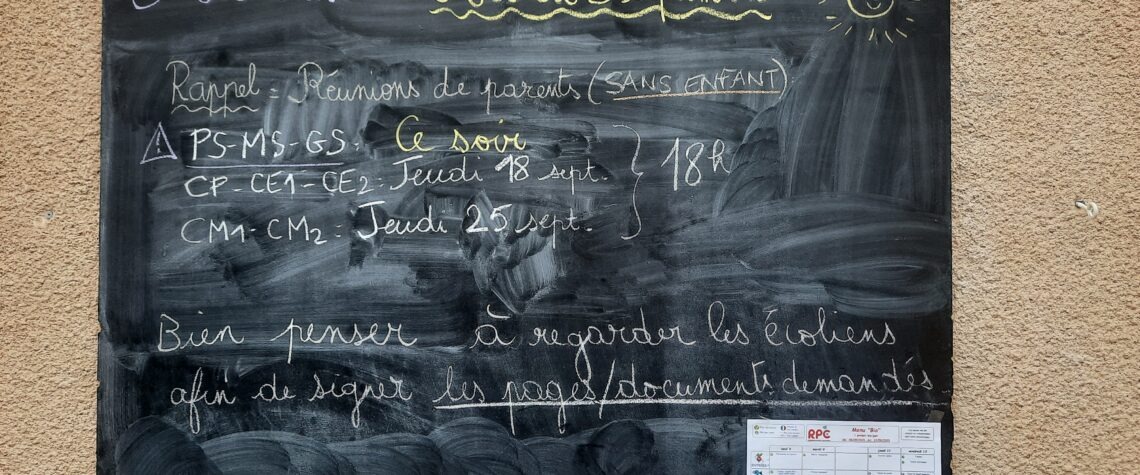 Rappel = Réunions de parents (SANS ENFANT)
⚠ PS-MS-GS = Ce soir
CP-CE1-CE2 = Jeudi 18 sept.
CM1-CM2 = Jeudi 25 sept.
18h
Bien penser à regarder les écoliens
afin de signer les pages/documents demandés
RPC
Menu "Bio"